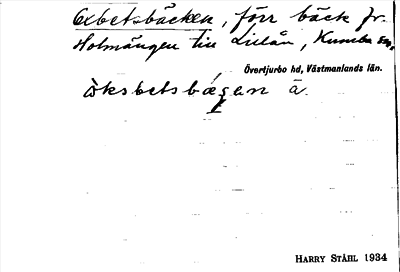 Oxbetsbäcken, förr bäck fr.
Holmängen till Lillån, Kumla sn,
Övertjurbo hd, Västmanlands län.
òksbetsbæ̀ḳen ä.
HARRY STÅHL 1934